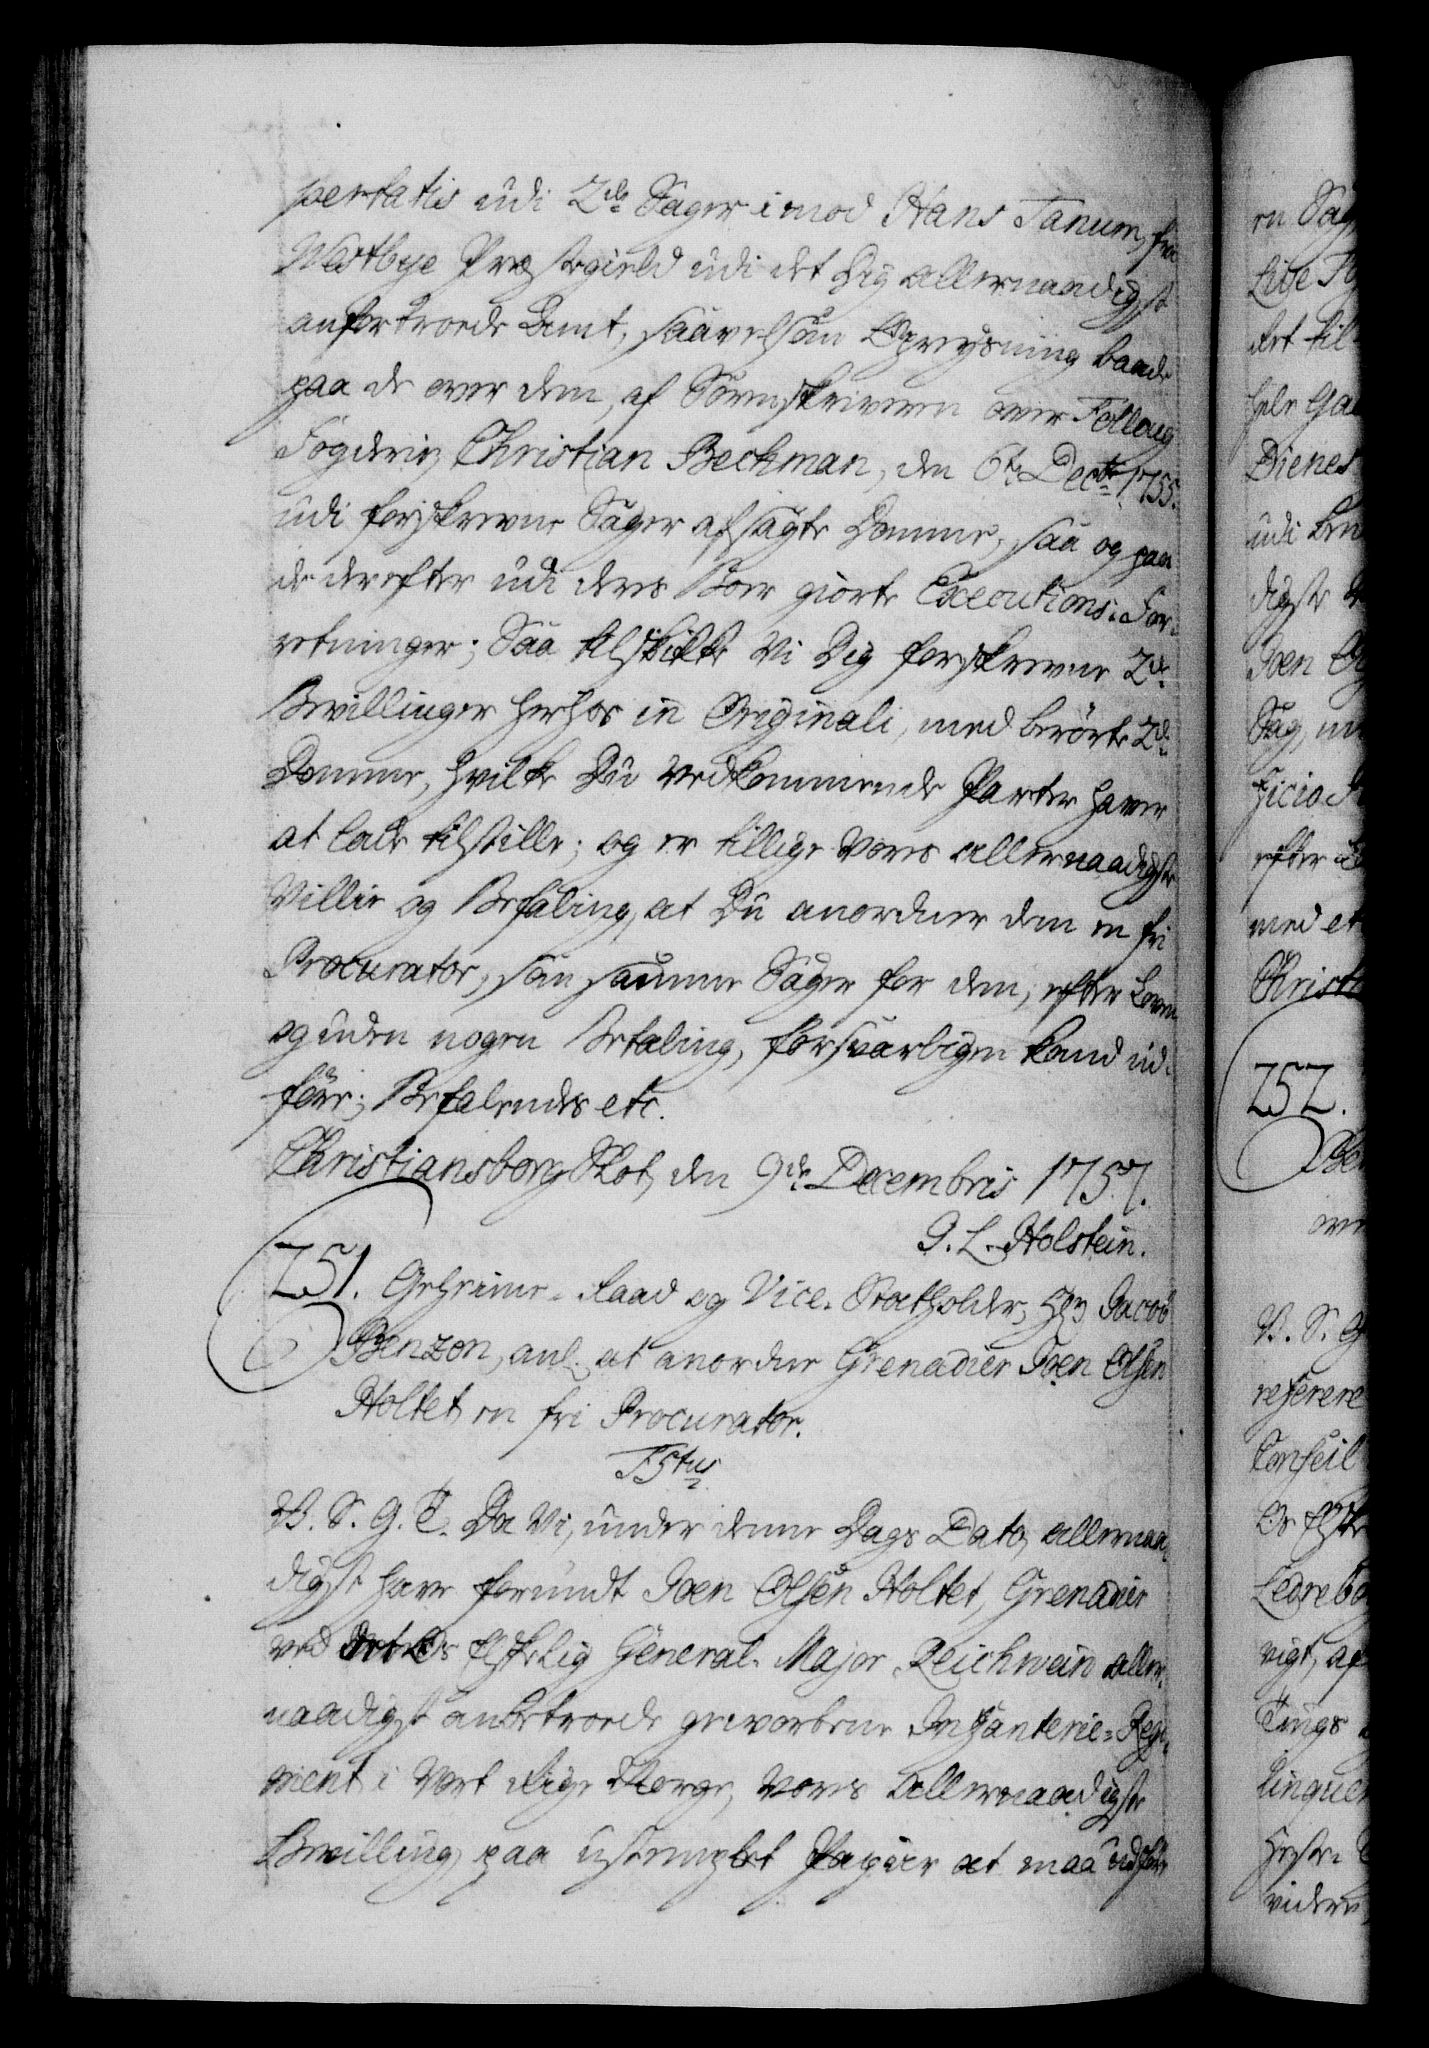 pertatis udi 2de Sager imod Hans Tanum, fra
Westbye Præstegield udi det Dig allernaadigst
anfortroede Amt, saavelsom Opreysning baade
paa de over dem, af Sorenskriveren over Follaug
Fogderie, Christian Beckman, den 6te Decbr 1755.
udi forskrevne Sager afsagte Domme, saa og paa
de derefter udi deres Boer giorte Executions-For-
retninger; Saa tilskikke Vi Dig forskrevne 2de
Bevillinger herhos in Originali, med berørte 2de
Domme, hvilke Du vedkommende Parter haver
at lade tilstille; og er tillige Vores allernaadigste
Villie og Befaling, at Du anordner dem en fri
Procurator, som samme Sager for dem, efter Loven
og uden nogen Betaling, forsvarligen kand ud-
føre; Befalendes etc.
Christiansborg Slot, den 9de Decembris 1757.
J. L. Holstein.
251. Geheime-Raad og Vice-Statholder, Hr Jacob
Benzon, anl. at anordne Grenadier Joen Olsen
Holtet en fri Procurator.
F5tus
V. S. G. T. Da Vi, under denne Dags Dato, allernaa-
digst have forundt Joen Olsen Holtet, Grenadier
ved det Os Elskelig General-Major Reichwein aller-
naadigst anbetroede gevorbene Infanterie-Regi-
ment i Vort Rige Norge, Vores allernaadigste
Bevilling, paa ustemplet Papiir at maa udføre
en Sag
det til
hele
Dienes
udi
digste
Joen
Sag,
ficio
efter
med et
Christ
252.
V. S. G
referere
Conseil
Os Elske
Ledrebo
vigt, af
Tings
linquen
Høste
videre